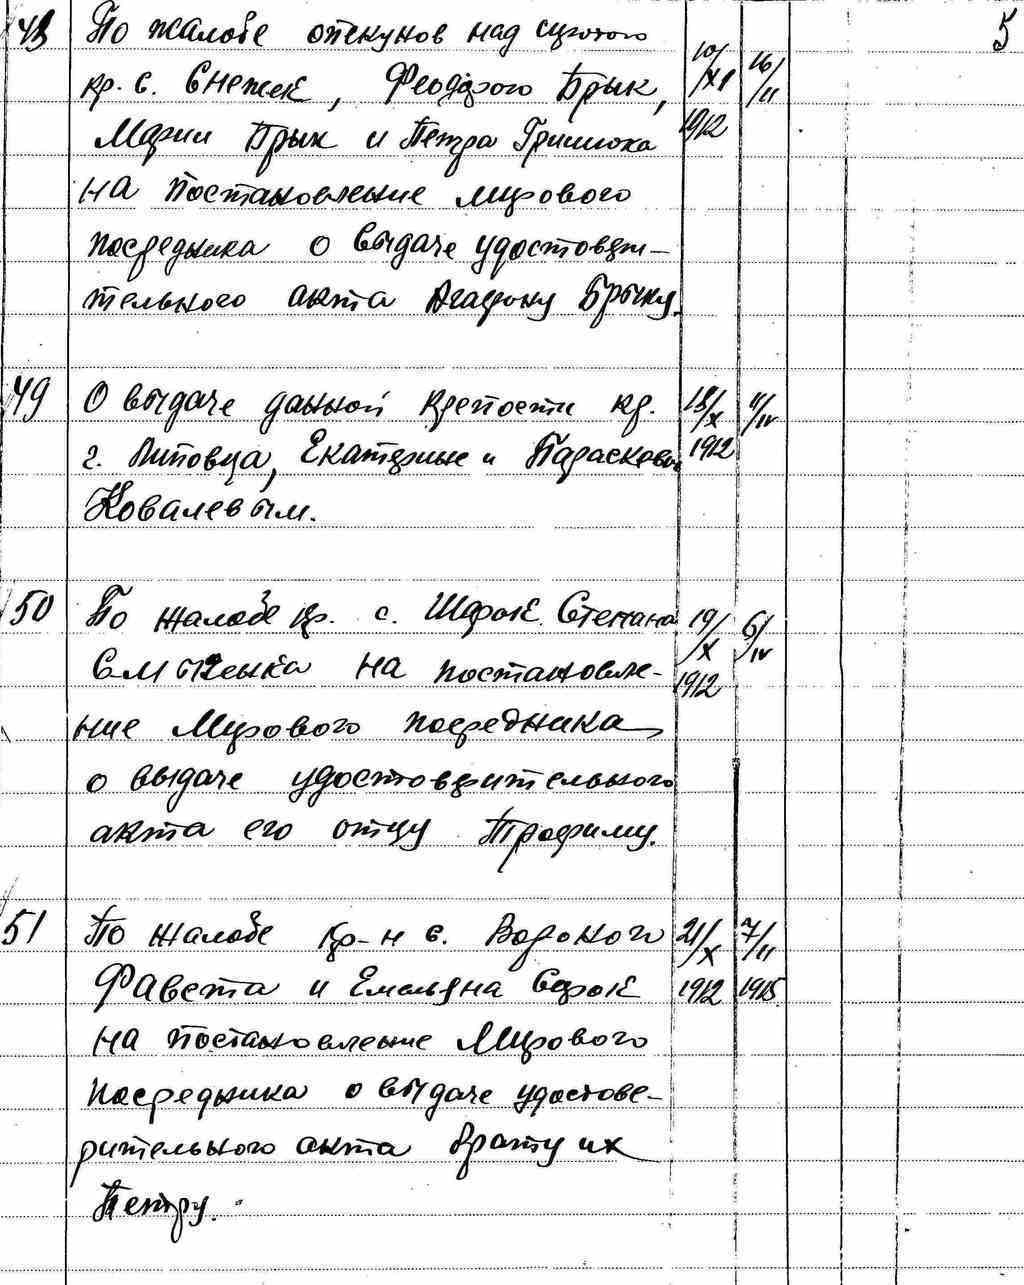 5
48 По жалобе опекунов над сиротою 10/XI 1912 16/II
кр. с. Снежек, Феодорого Брык,
Марии Брык и Петра Гришюка
на постановление мирового
посредника о выдаче удостовери-
тельного акта Агафону Брыку.
49 О выдаче данной крепости кр. 18/X 1912 11/IV
г. Липовца, Екатерине и Параскевии
Ковалевым.
50 По жалобе кр. с. Шарок Степана 19/X 1912 6/IV
на постановле-
ние Мирового посредника
о выдаче удостоверительного
акта его отцу Трофиму.
51 По жалобе кр-н с. 21/X 1912 7/II 1915
Фавста и Емельяна Сорок
на постановление Мирового
посредника о выдаче удостове-
рительного акта брату их
Петру.